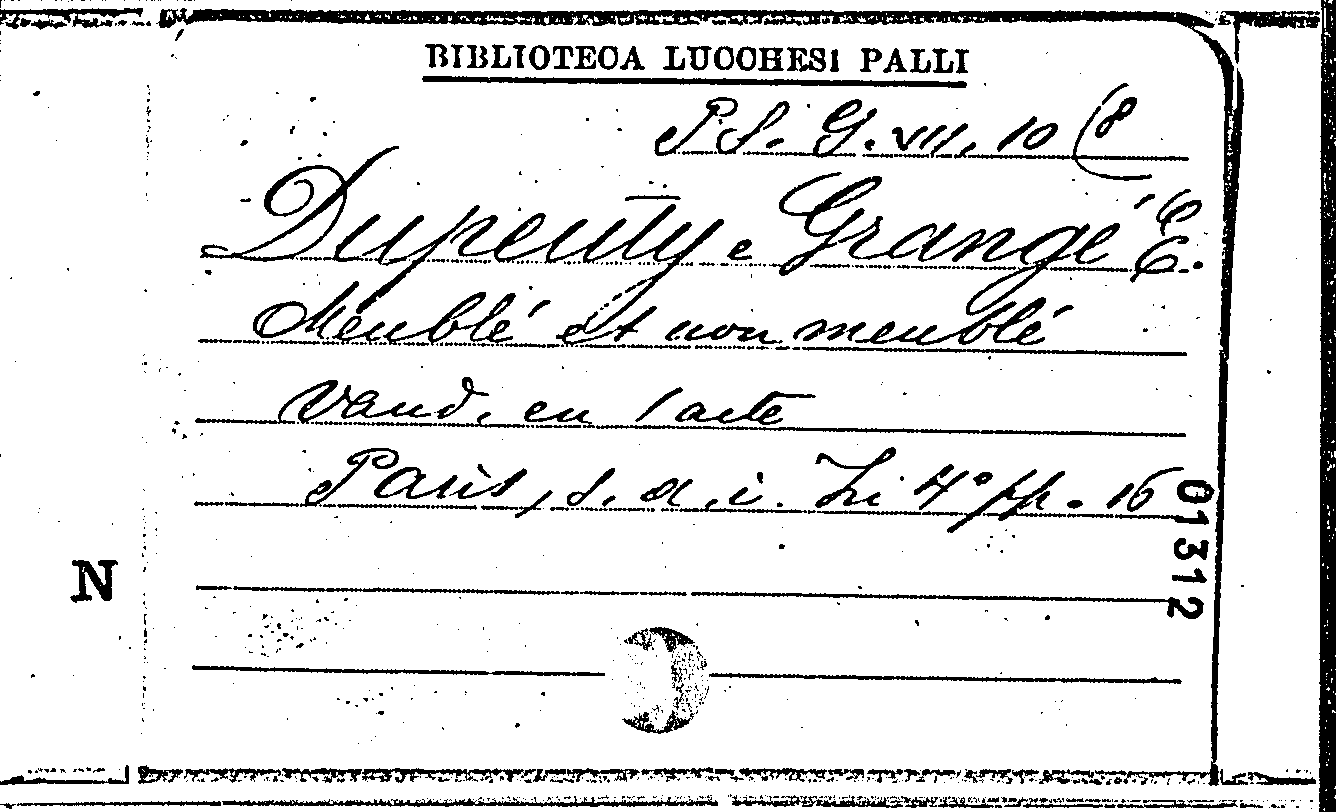 BIBLIOTECA LUCCHESI PALLI
P. S. G. VII. 10 (8
Dupeuty e Grangé E.
Meublé et non meublé
Vaud. en 1 acte
Paris, s. d. i. In 4° pp. 16
01312
N